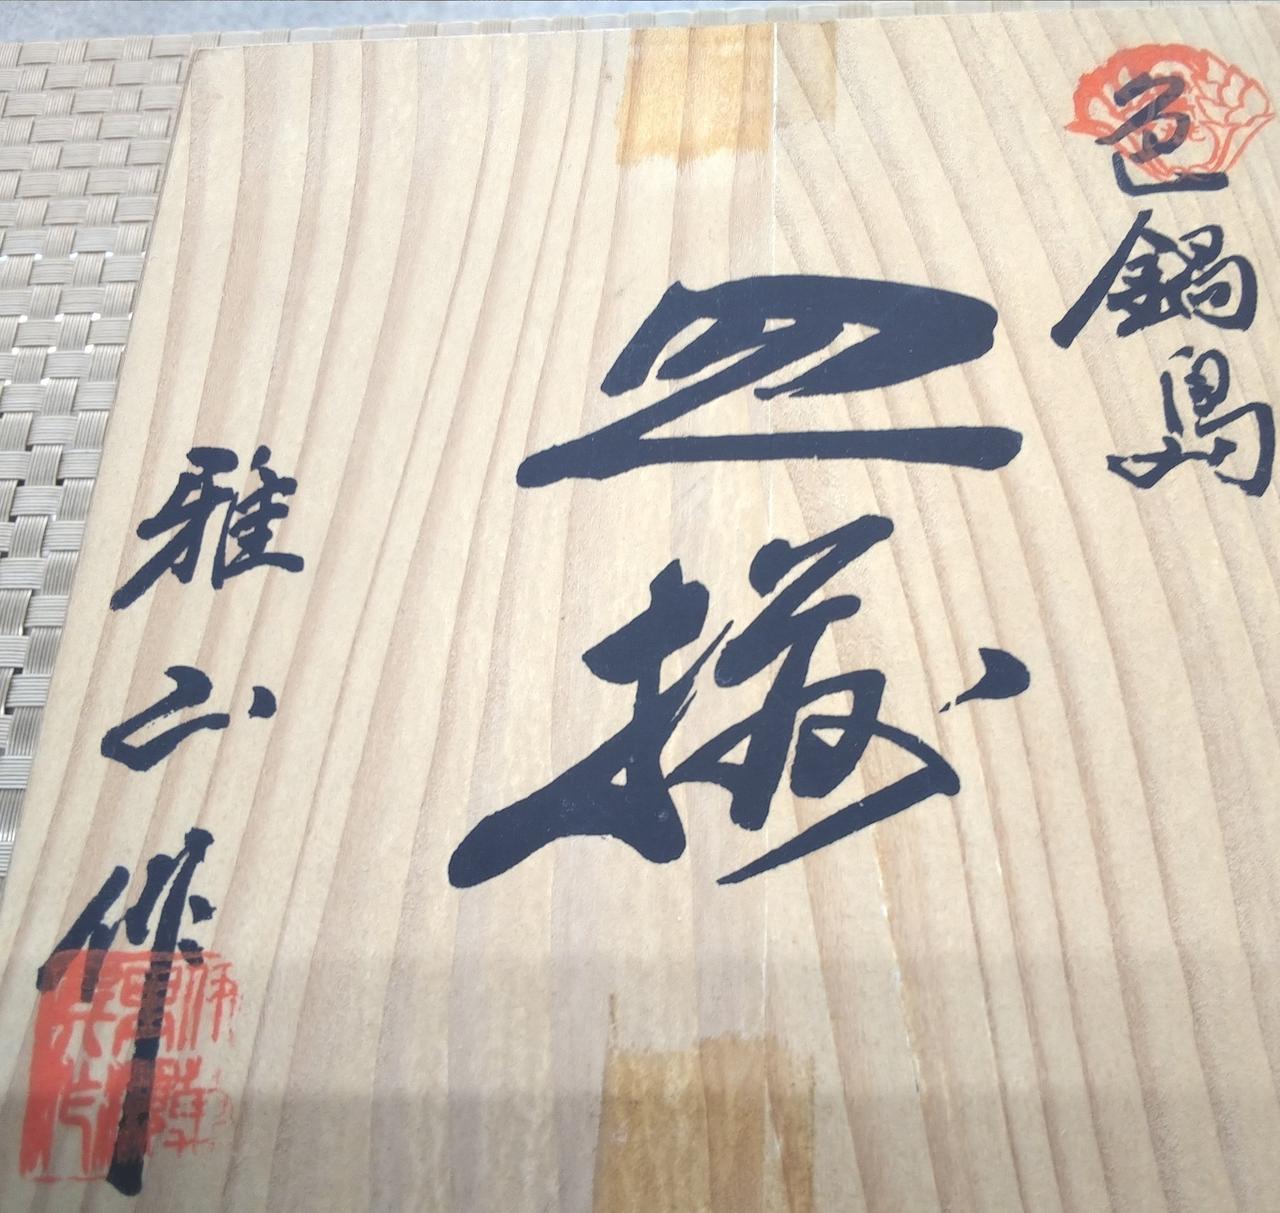 色鍋島
皿揃
雅山作